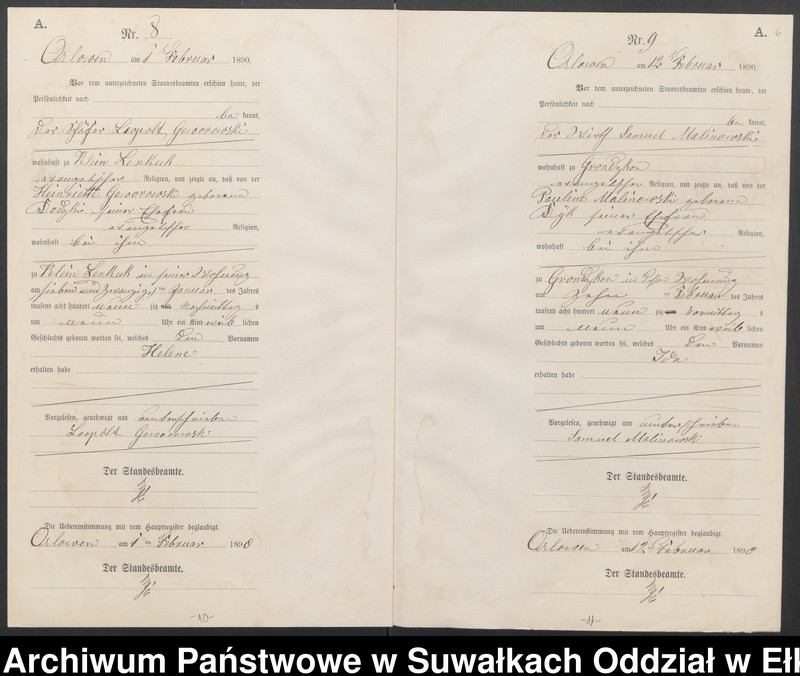 A.
Nr. 8
Orlowen am 1 Februar 1890.
Vor dem unterzeichneten Standesbeamten erschien heute, der
Persönlichkeit nach
be kannt,
der Leopold Geworowski
wohnhaft zu Klein Lenkuk
evangelischer Religion, und zeigte an, daß von der
Henriette Geworowski geborenen
seiner Ehefrau
evangelischer Religion,
wohnhaft bei ihm
zu Klein Lenkuk in seiner Wohnung
am sieben und zwanzigsten Januar des Jahres
tausend acht hundert neun zig Nachmittag s
um neun Uhr ein Kind weib lichen
Geschlechts geboren worden sei, welches den Vornamen
Helene
erhalten habe
Vorgelesen, genehmigt und unterschrieben
Leopold Geworowski
Der Standesbeamte.
Die Uebereinstimmung mit dem Hauptregister beglaubigt.
Orlowen am 1 Februar 1890
Der Standesbeamte.
-10-
A. 6
Nr. 9
Orlowen am 12 Februar 1890.
Vor dem unterzeichneten Standesbeamten erschien heute, der
Persönlichkeit nach
be kannt,
der Wirth Samuel Malinowski
wohnhaft zu Grondzken
evangelischer Religion, und zeigte an, daß von der
Pauline Malinowski geborenen
seiner Ehefrau
evangelischer Religion,
wohnhaft bei ihm
zu Grondzken in Wohnung
am zehn Februar des Jahres
tausend acht hundert neun zig Vormittag s
um neun Uhr ein Kind weib lichen
Geschlechts geboren worden sei, welches den Vornamen
Ida
erhalten habe
Vorgelesen, genehmigt und unterschrieben
Samuel Malinowski
Der Standesbeamte.
Die Uebereinstimmung mit dem Hauptregister beglaubigt.
Orlowen am 12 Februar 1890
Der Standesbeamte.
-11-
Archiwum Państwowe w Suwałkach Oddział w Ełk